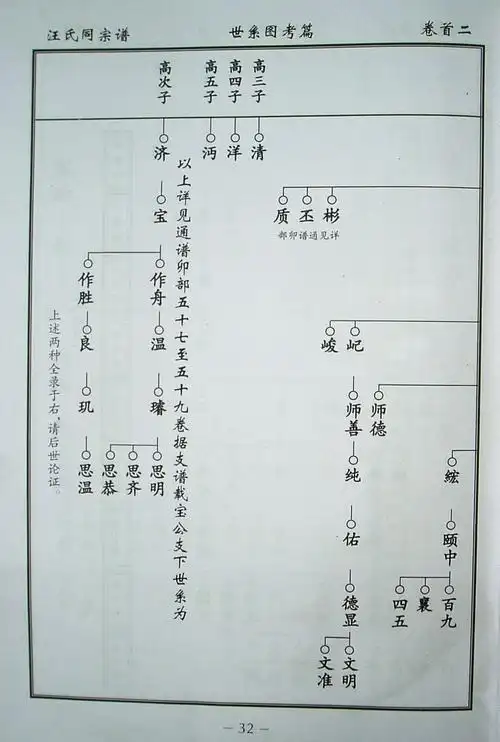 汪氏同宗谱
世系图考篇
卷首二
高三子
高四子
高五子
高次子
清
洋
沔
济
宝
作舟
作胜
温
良
璿
玑
思明
思齐
思恭
思温
以上详见通谱卯部五十七至五十九卷据支谱载宝公支下世系为
上述两种全录于右，请后世论证。
彬
丕
质
详见通谱卯部
屺
峻
师德
师善
纯
佑
德显
文明
文准
綋
颐中
百九
襄
四五
－32－